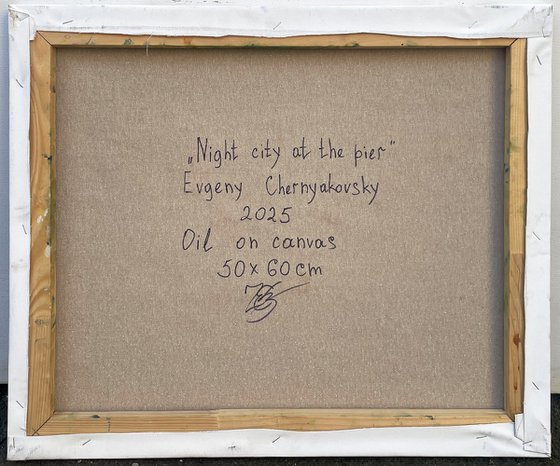 „Night city at the pier"
Evgeny Chernyakovsky
2025
Oil on canvas
50 x 60 cm